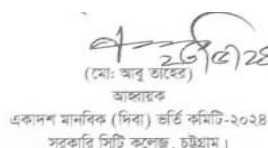 (মো: আবু তাহের)
আহ্বায়ক
একাদশ মানবিক (দিবা) ভর্তি কমিটি-২০২৪
সরকারি সিটি কলেজ, চট্টগ্রাম।